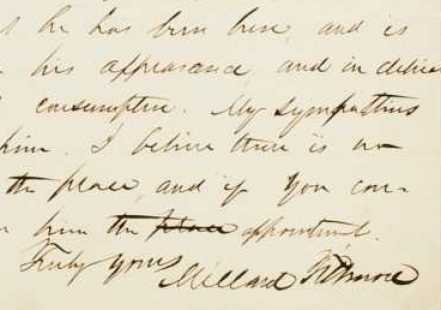 he has been here, and is
his appearance, and in delica
consumptive. My sympathies
him. I believe there is no
the place, and if you con-
him the place appointment.
Truly yours
Millard Fillmore